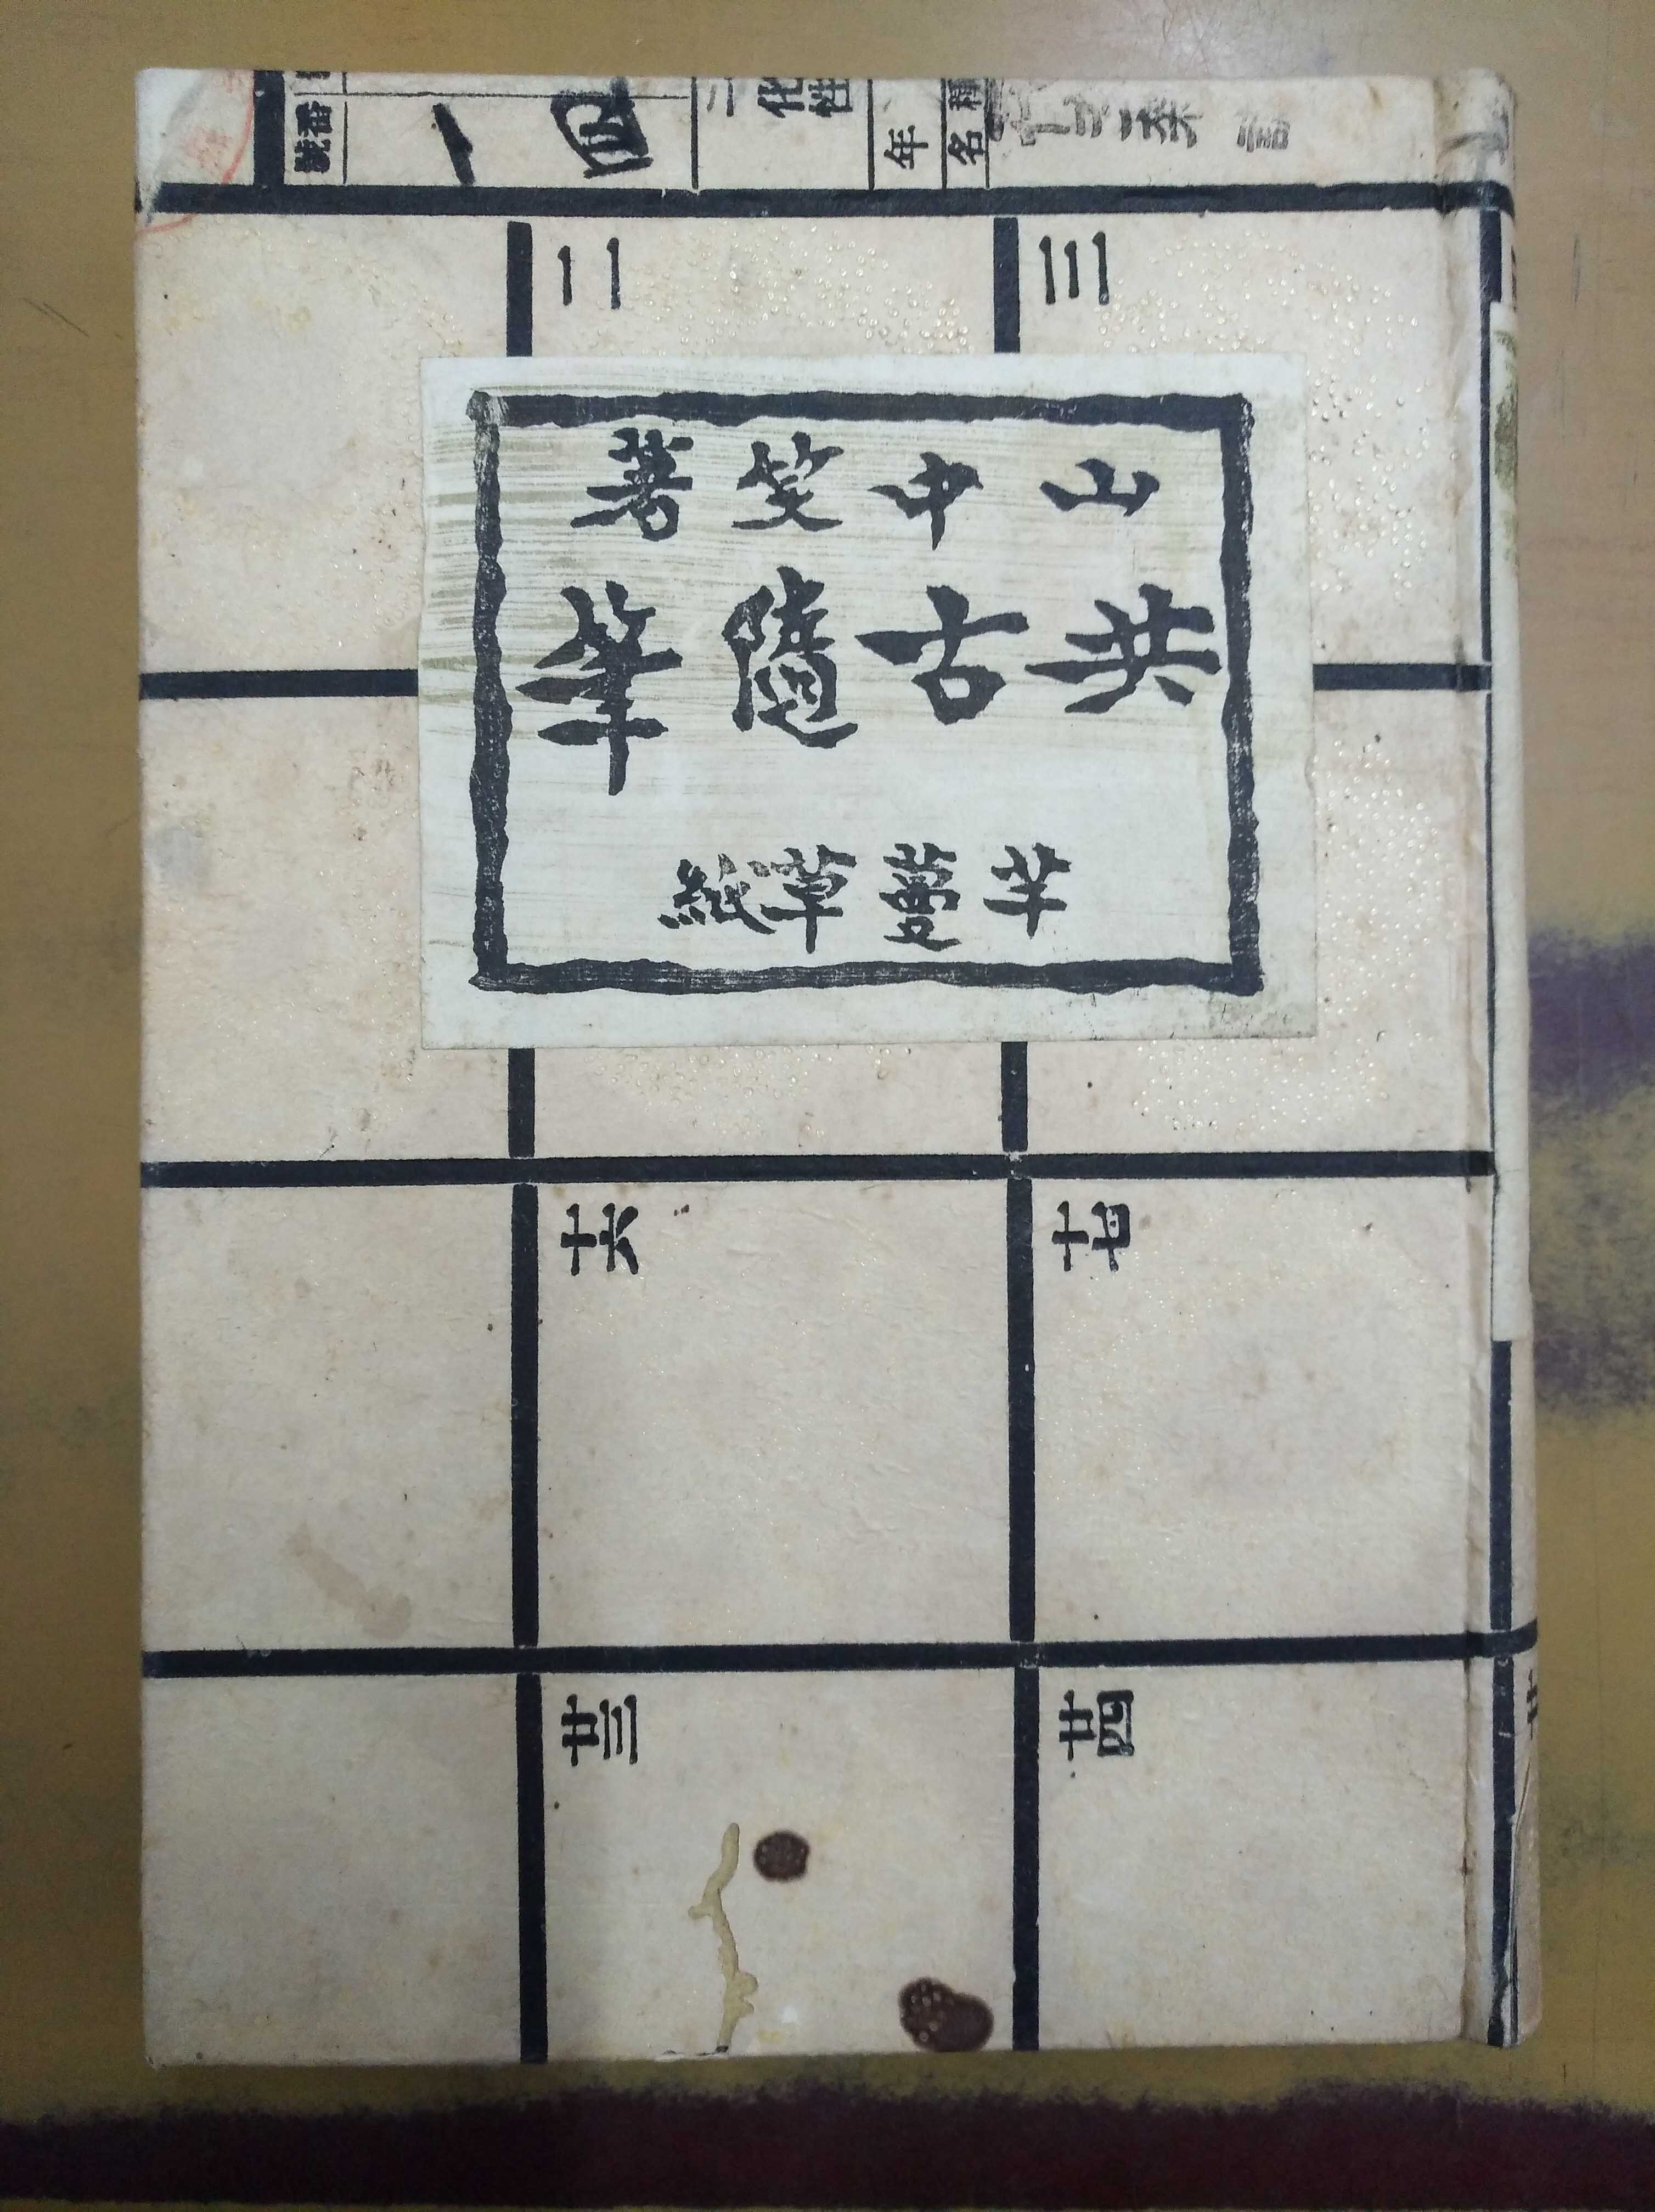 番號
一四
二化性
年
種名
二
三
山中笑著
共古隨筆
芋蔓草紙
十六
十七
廿三
廿四